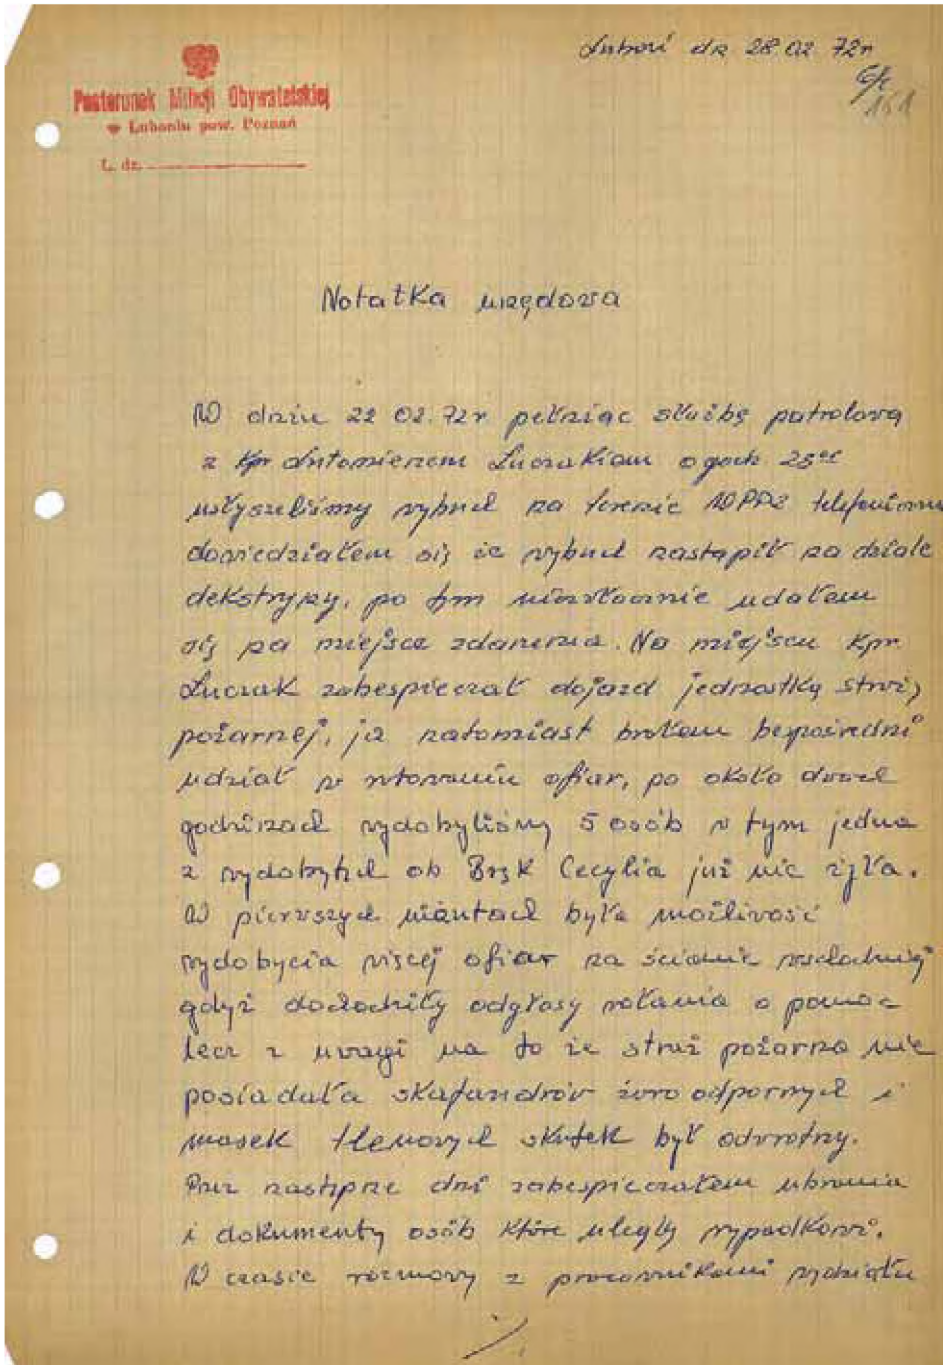 Luboń dn 28 02 72r
161
Posterunek Milicji Obywatelskiej
w Luboniu pow. Poznań
L. dz.
Notatka urzędowa
W dniu 22 02.72r pełniąc służbę patrolową
z kpr Antonienem Luczakiem o godz 23oo
usłyszeliśmy wybuch na terenie WPPZ telefonicznie
dowiedziałem się że wybuch nastąpił na dziale
dekstryny, po tym niezwłocznie udałem
się na miejsce zdarzenia. Na miejscu kpr
Luczak zabespieczał dojazd jednostką straży
pożarnej, ja natomiast brałem bezpośredni
udział w ratowaniu ofiar, po około dwoch
godzinach wydobyliśmy 5 osób w tym jedna
z wydobytych ob Bzyk Cecylia już nie żyła.
W pierwszych minutach była możliwość
wydobycia więcej ofiar na ścianie wschodniej
gdyż dochodziły odgłosy wołania o pomoc
lecz z uwagi na to że straż pożarna nie
posiadała skafandrów żaroodpornych i
masek tlenowych skutek był odwrotny.
Przez następne dni zabespieczałem ubrania
i dokumenty osób które uległy wypadkowi.
W czasie rozmowy z pracownikami wydziału